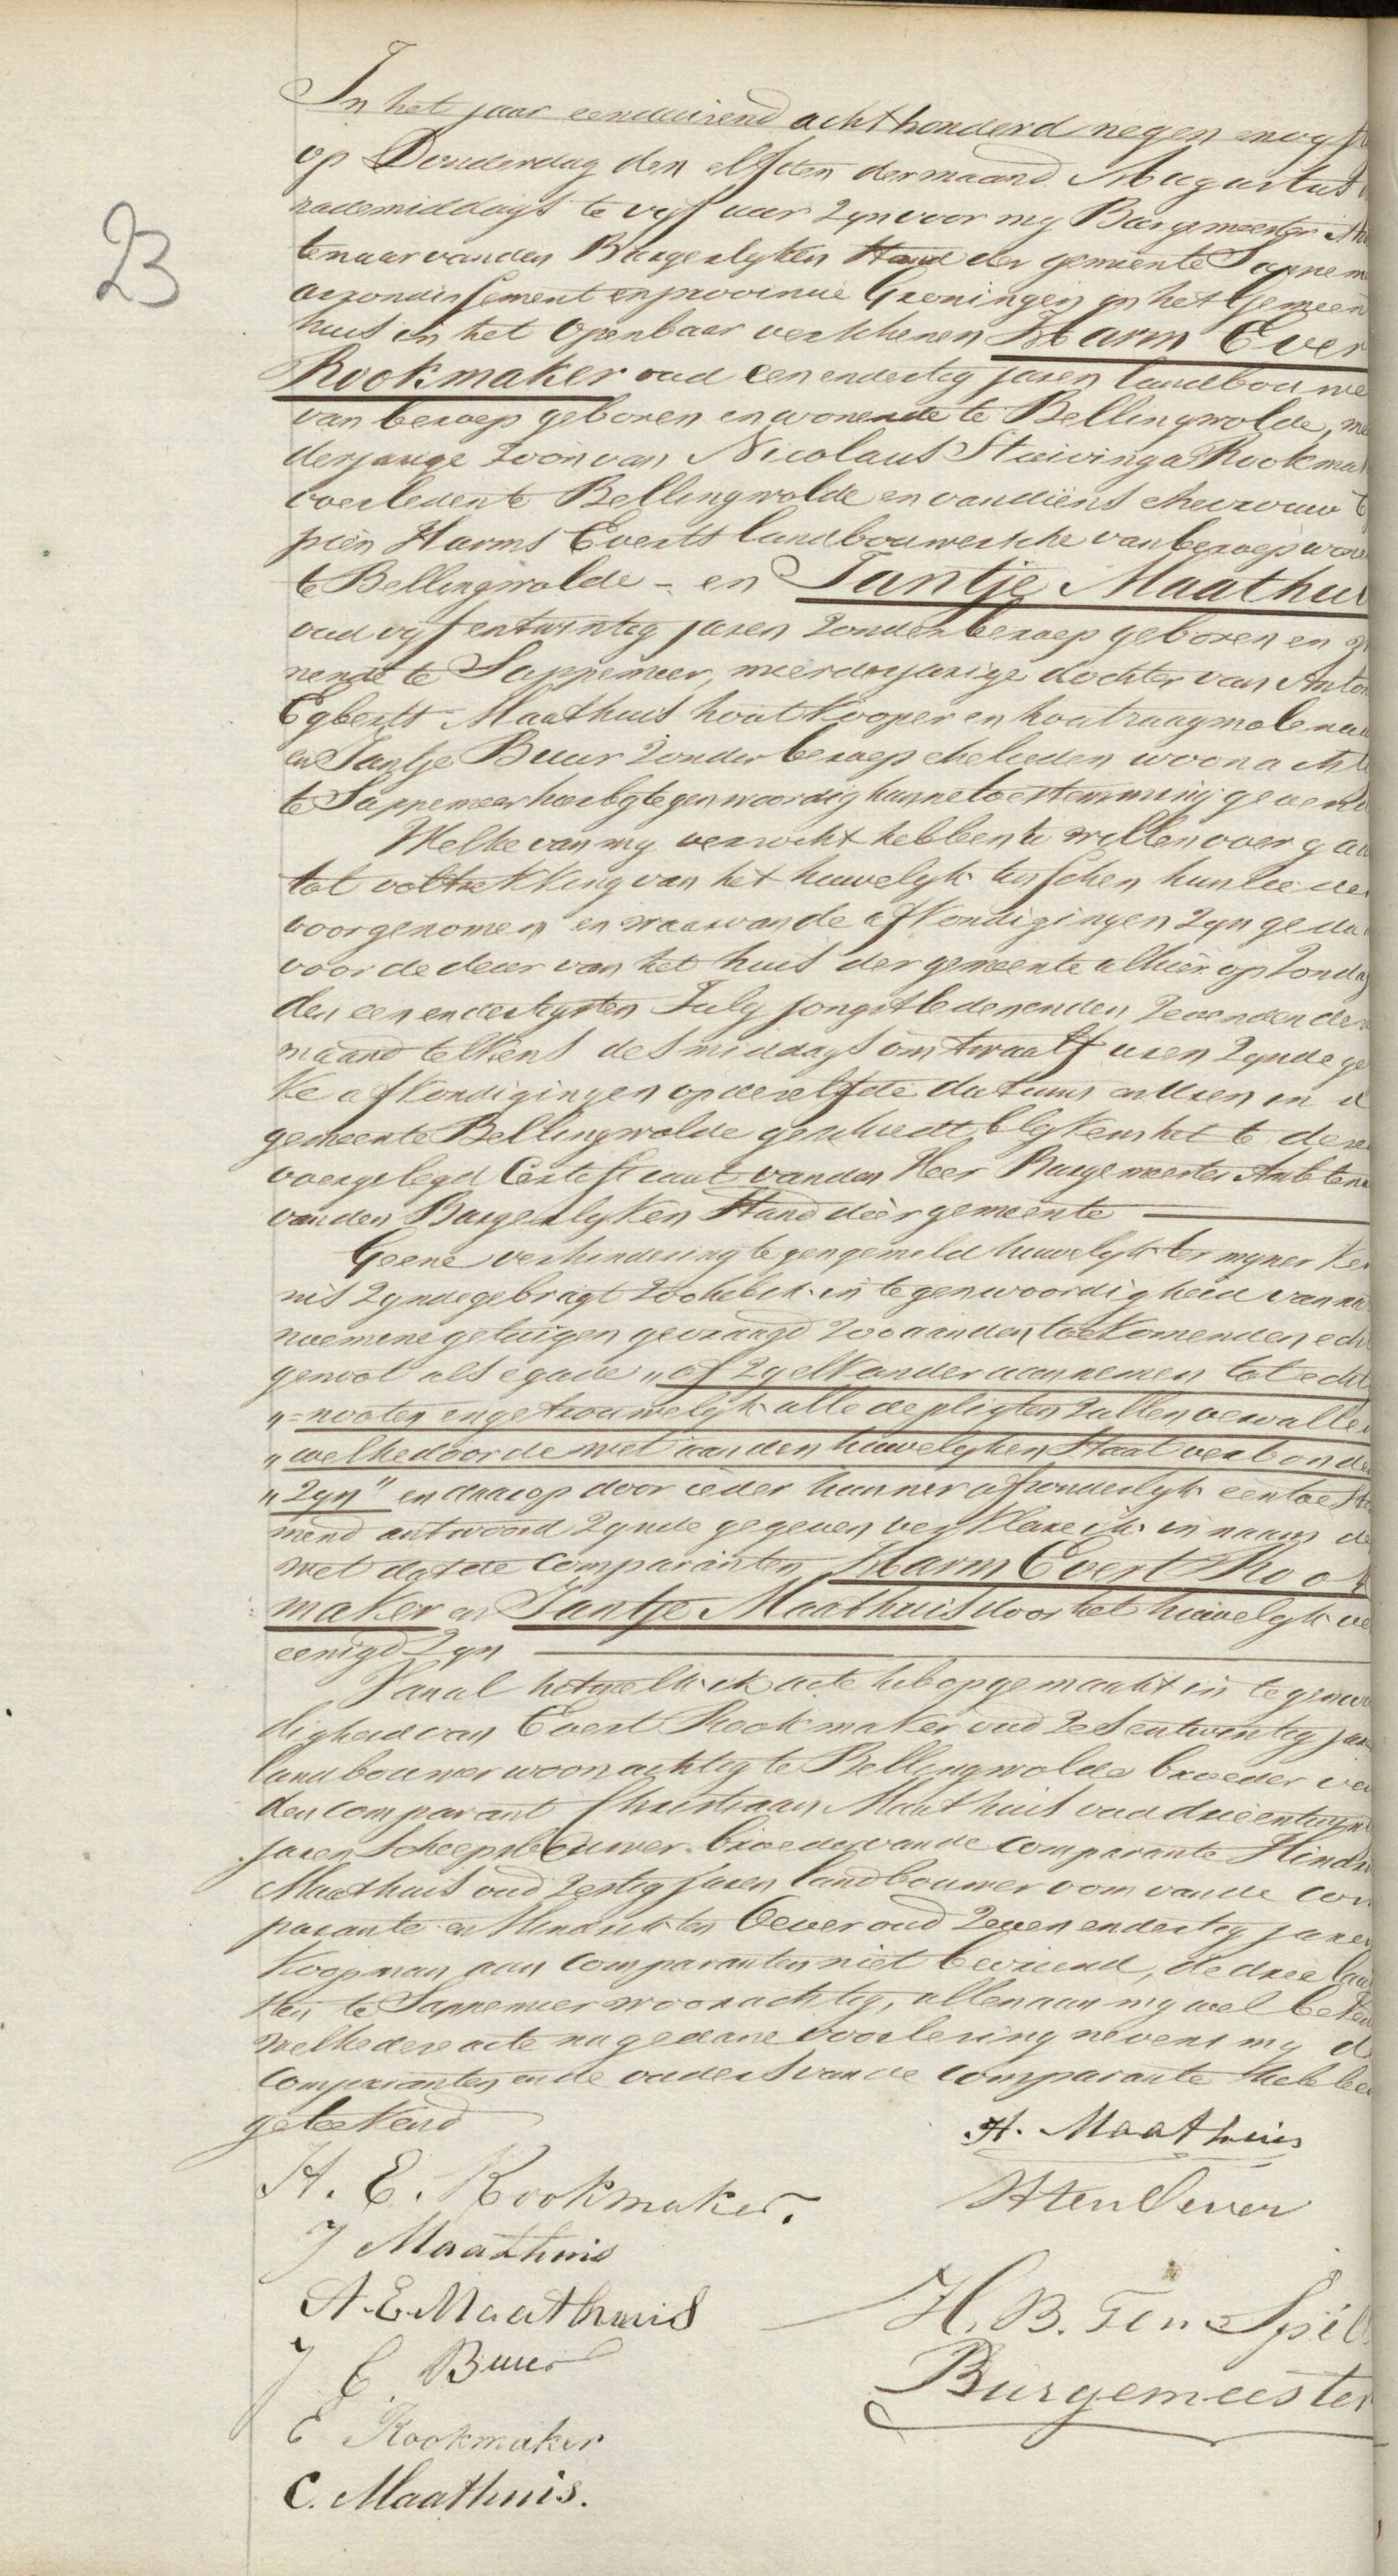 23
In het jaar eenduizend achthonderd negen en vyf
op Donderdag den elfden der maand Augustus
nademiddags te vyf uur zyn voor my Burgemeester
tenaar van den Burgerlyken Stand der gemeente Sappem
arrondissement en provincie Groningen in het Gemeen
huis in het openbaar verschenen Harm Ever
Rookmaker oud een en dertig jaren landbouwe
van beroep geboren en wonende te Bellingwolde, me
derjarige zoon van Nicolaus Stuivinga Rookma
overleden te Bellingwolde en van diens Mevrouw
pien Harms Everts landbouwersche van beroep wone
te Bellingwolde - en Jantje Maathui
oud vyf en twintig jaren zonder beroep geboren en
nende te Sappemeer, meerderjarige dochter van Anto
Egberts Maathuis houtkooper en houtzaagmolenaar
en Jantje Buur zonder beroep ehelieden woonacht
te Sappemeer hierby tegenwoordig hunne toestemming gevend
Welke van my verzocht hebben te willen overgaa
tot voltrekking van het huwelyk tusschen hun lieden
voorgenomen en waarvan de afkondigingen zyn gedaa
voor de deur van het huis der gemeente alhier op Zondag
den een en dertigsten July jongstleden en den zevenden dezer
maand telkens des middags om twaalf uren zynde ge
ke afkondigingen op dezelfde datums en uren in d
gemeente Bellingwolde geschiedt blykens het te dezen
overgelegd Certificaat van den Heer Burgemeester Ambtena
van den Burgerlyken Stand dier gemeente
Geene verhindering tegen gemeld huwelyk ter myner Ken
nis zynde gebragt zoo heb ik in tegenwoordigheid van na
noemene getuigen gevraagd zoo aan den toekomenden echt
genoot als egade „of zy elkander aannemen tot echt
„=nooten en getrouwelyk alle de pligten zullen vervullen
„welke door de wet aan den huwelyken Staat verbonden
„zyn" en daarop door ieder hunner afzonderlyk een toeste
mend antwoord zynde gegeven verklare ik in naam de
wet dat de comparanten Harm Evert Rook
maker en Jantje Maathuis door het huwelyk ve
eenigd zyn
Van al hetwelk ik acte heb opgemaakt in tegenwo
digheid van Evert Rookmaker oud zes en twintig jare
landbouwer woonachtig te Bellingwolde broeder van
den comparant Christiaan Maathuis oud drie en twint
jaren Scheepsbouwer broeder van de comparante Hindri
Maathuis oud zestig jaren landbouwer oom van de com
parante en Hindrik ten Cever oud zeven en dertig jaren
Koopman aan comparanten niet bevriend, de drie laat
sten te Sappemeer woonachtig, allen aan my wel beken
welke deze acte na gedane voorlezing nevens my d
comparanten en de ouders van de comparante hebben
geteekend
H. E. Rookmaker.
J Maathuis
A. E. Maathuis
J E Buur
E Rookmaker
C. Maathuis.
H. Maathuis
H ten Cever
H. B. Ten Spil
Burgemeester